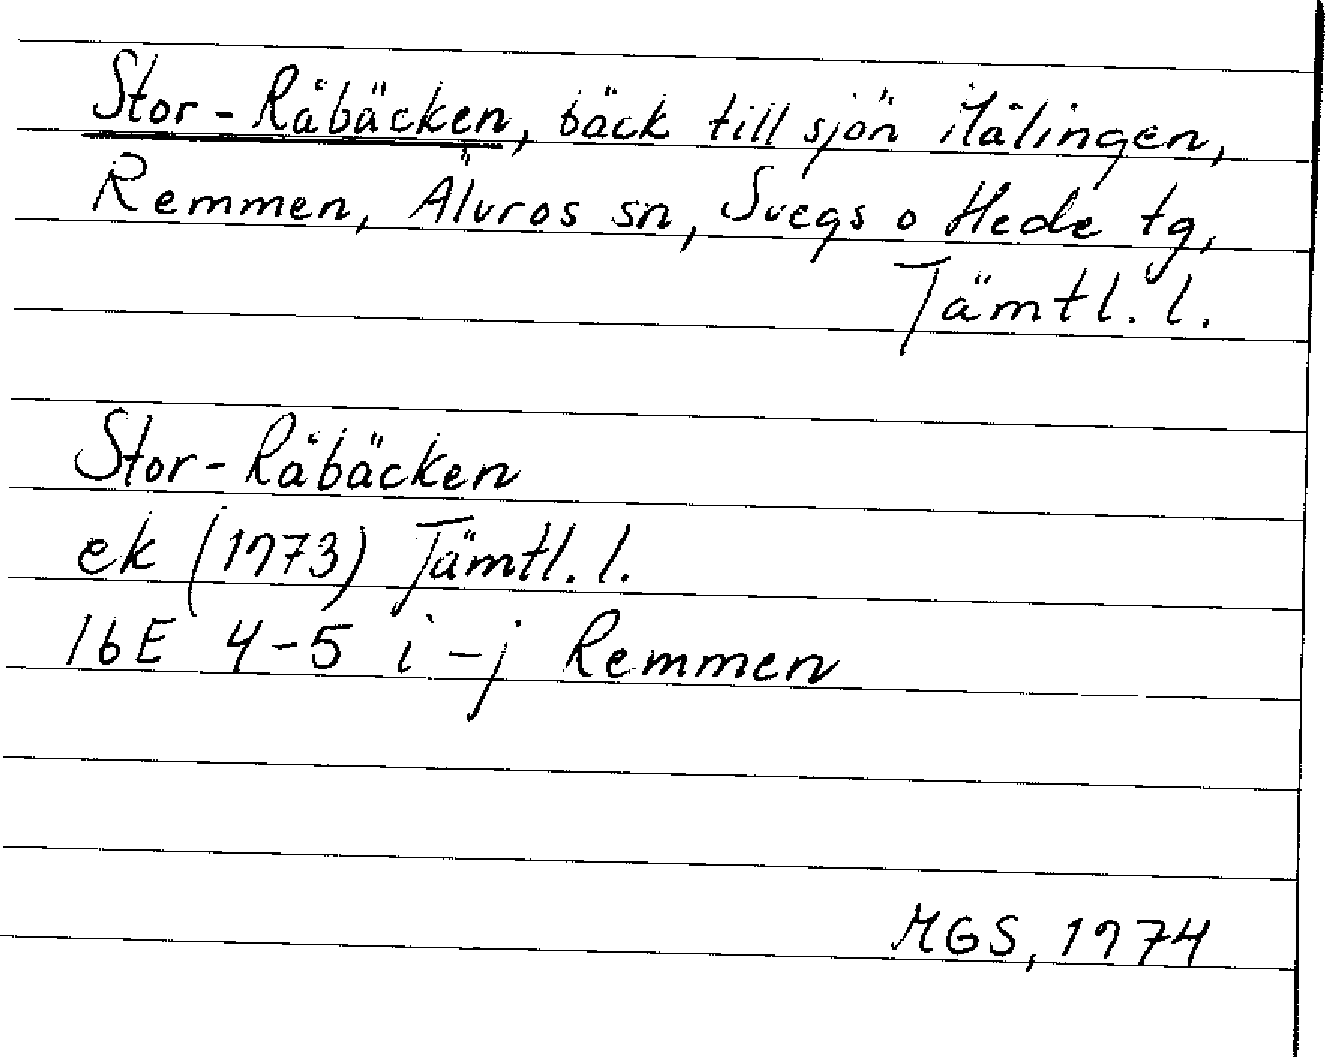 Stor-Råbäcken, bäck till sjön
Remmen, Älvros sn, Svegs o Hede tg,
Jämtl. l.
Stor-Råbäcken
ek (1973) Jämtl. l.
16E 4-5 i-j Remmen
MGS, 1974